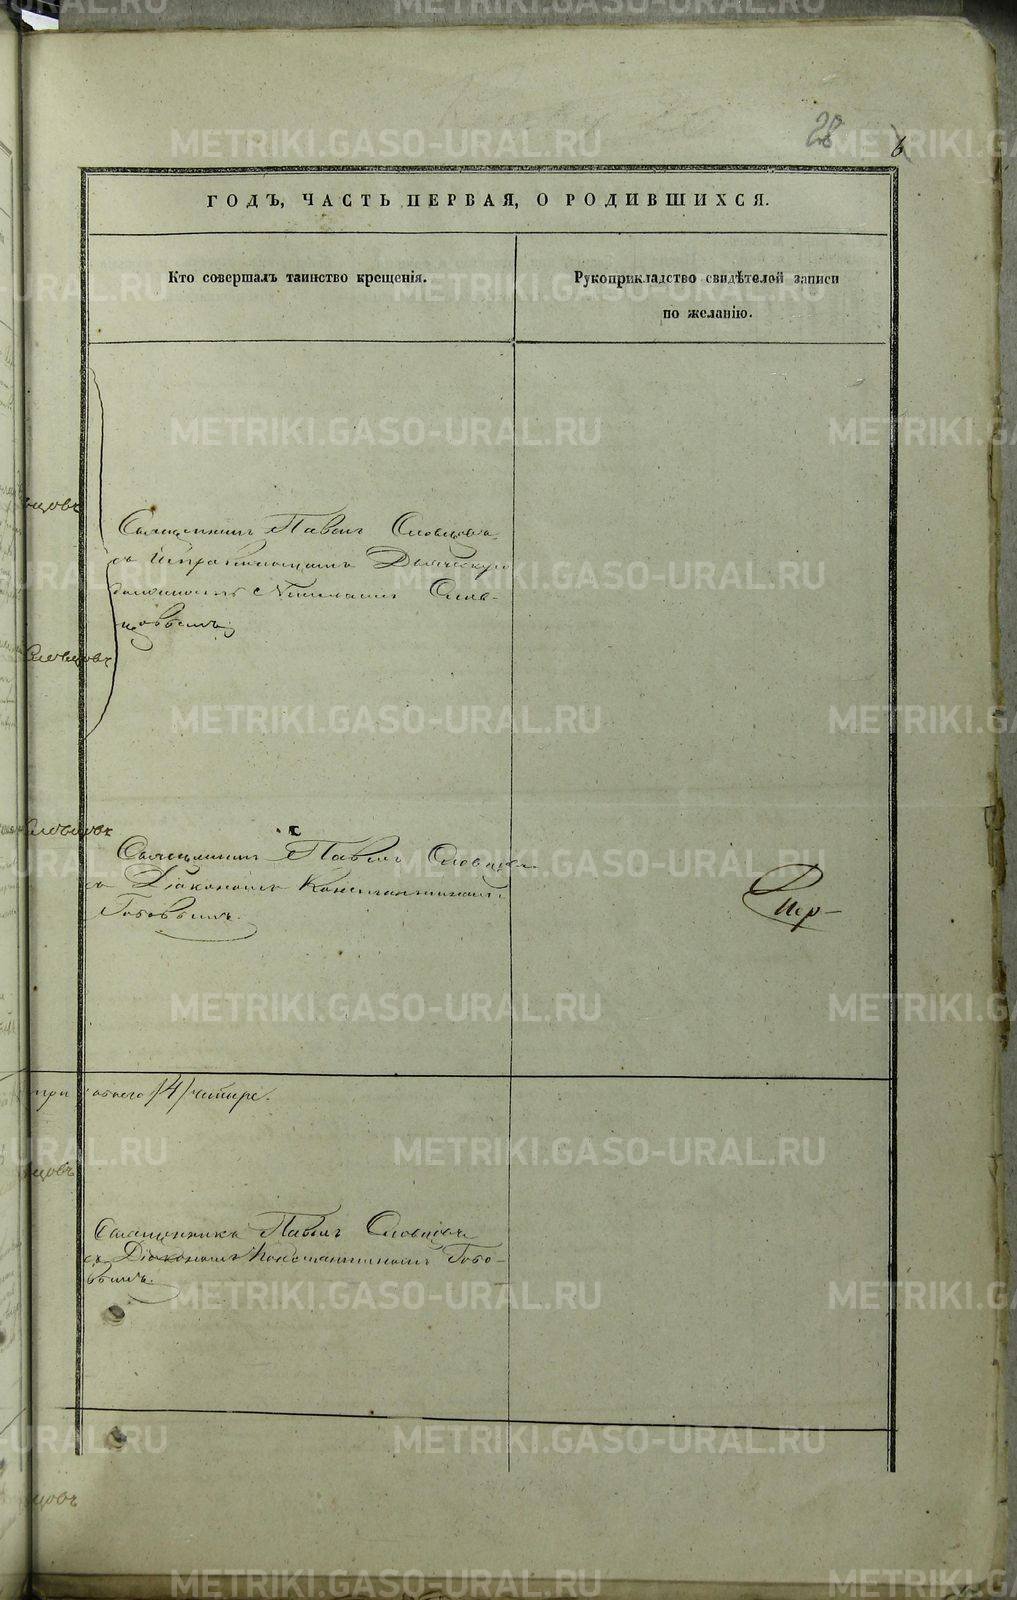 28
6
ГОДЪ, ЧАСТЬ ПЕРВАЯ, О РОДИВШИХСЯ.
Кто совершалъ таинство крещенія.
Рукоприкладство свидѣтелей записи
по желанію.
Священникъ Павелъ Словцовъ
съ Исправляющимъ Дьяческую
должность Николаемъ Слов-
цовымъ
Словцовъ
Словцовъ
Священникъ Павелъ Словцовъ
съ Діакономъ Константиномъ
Гобовымъ.
/4/ четыре.
Священникъ Павелъ Словцовъ
съ Діакономъ Константиномъ Гобо-
вымъ.
METRIKI.GASO-URAL.RU